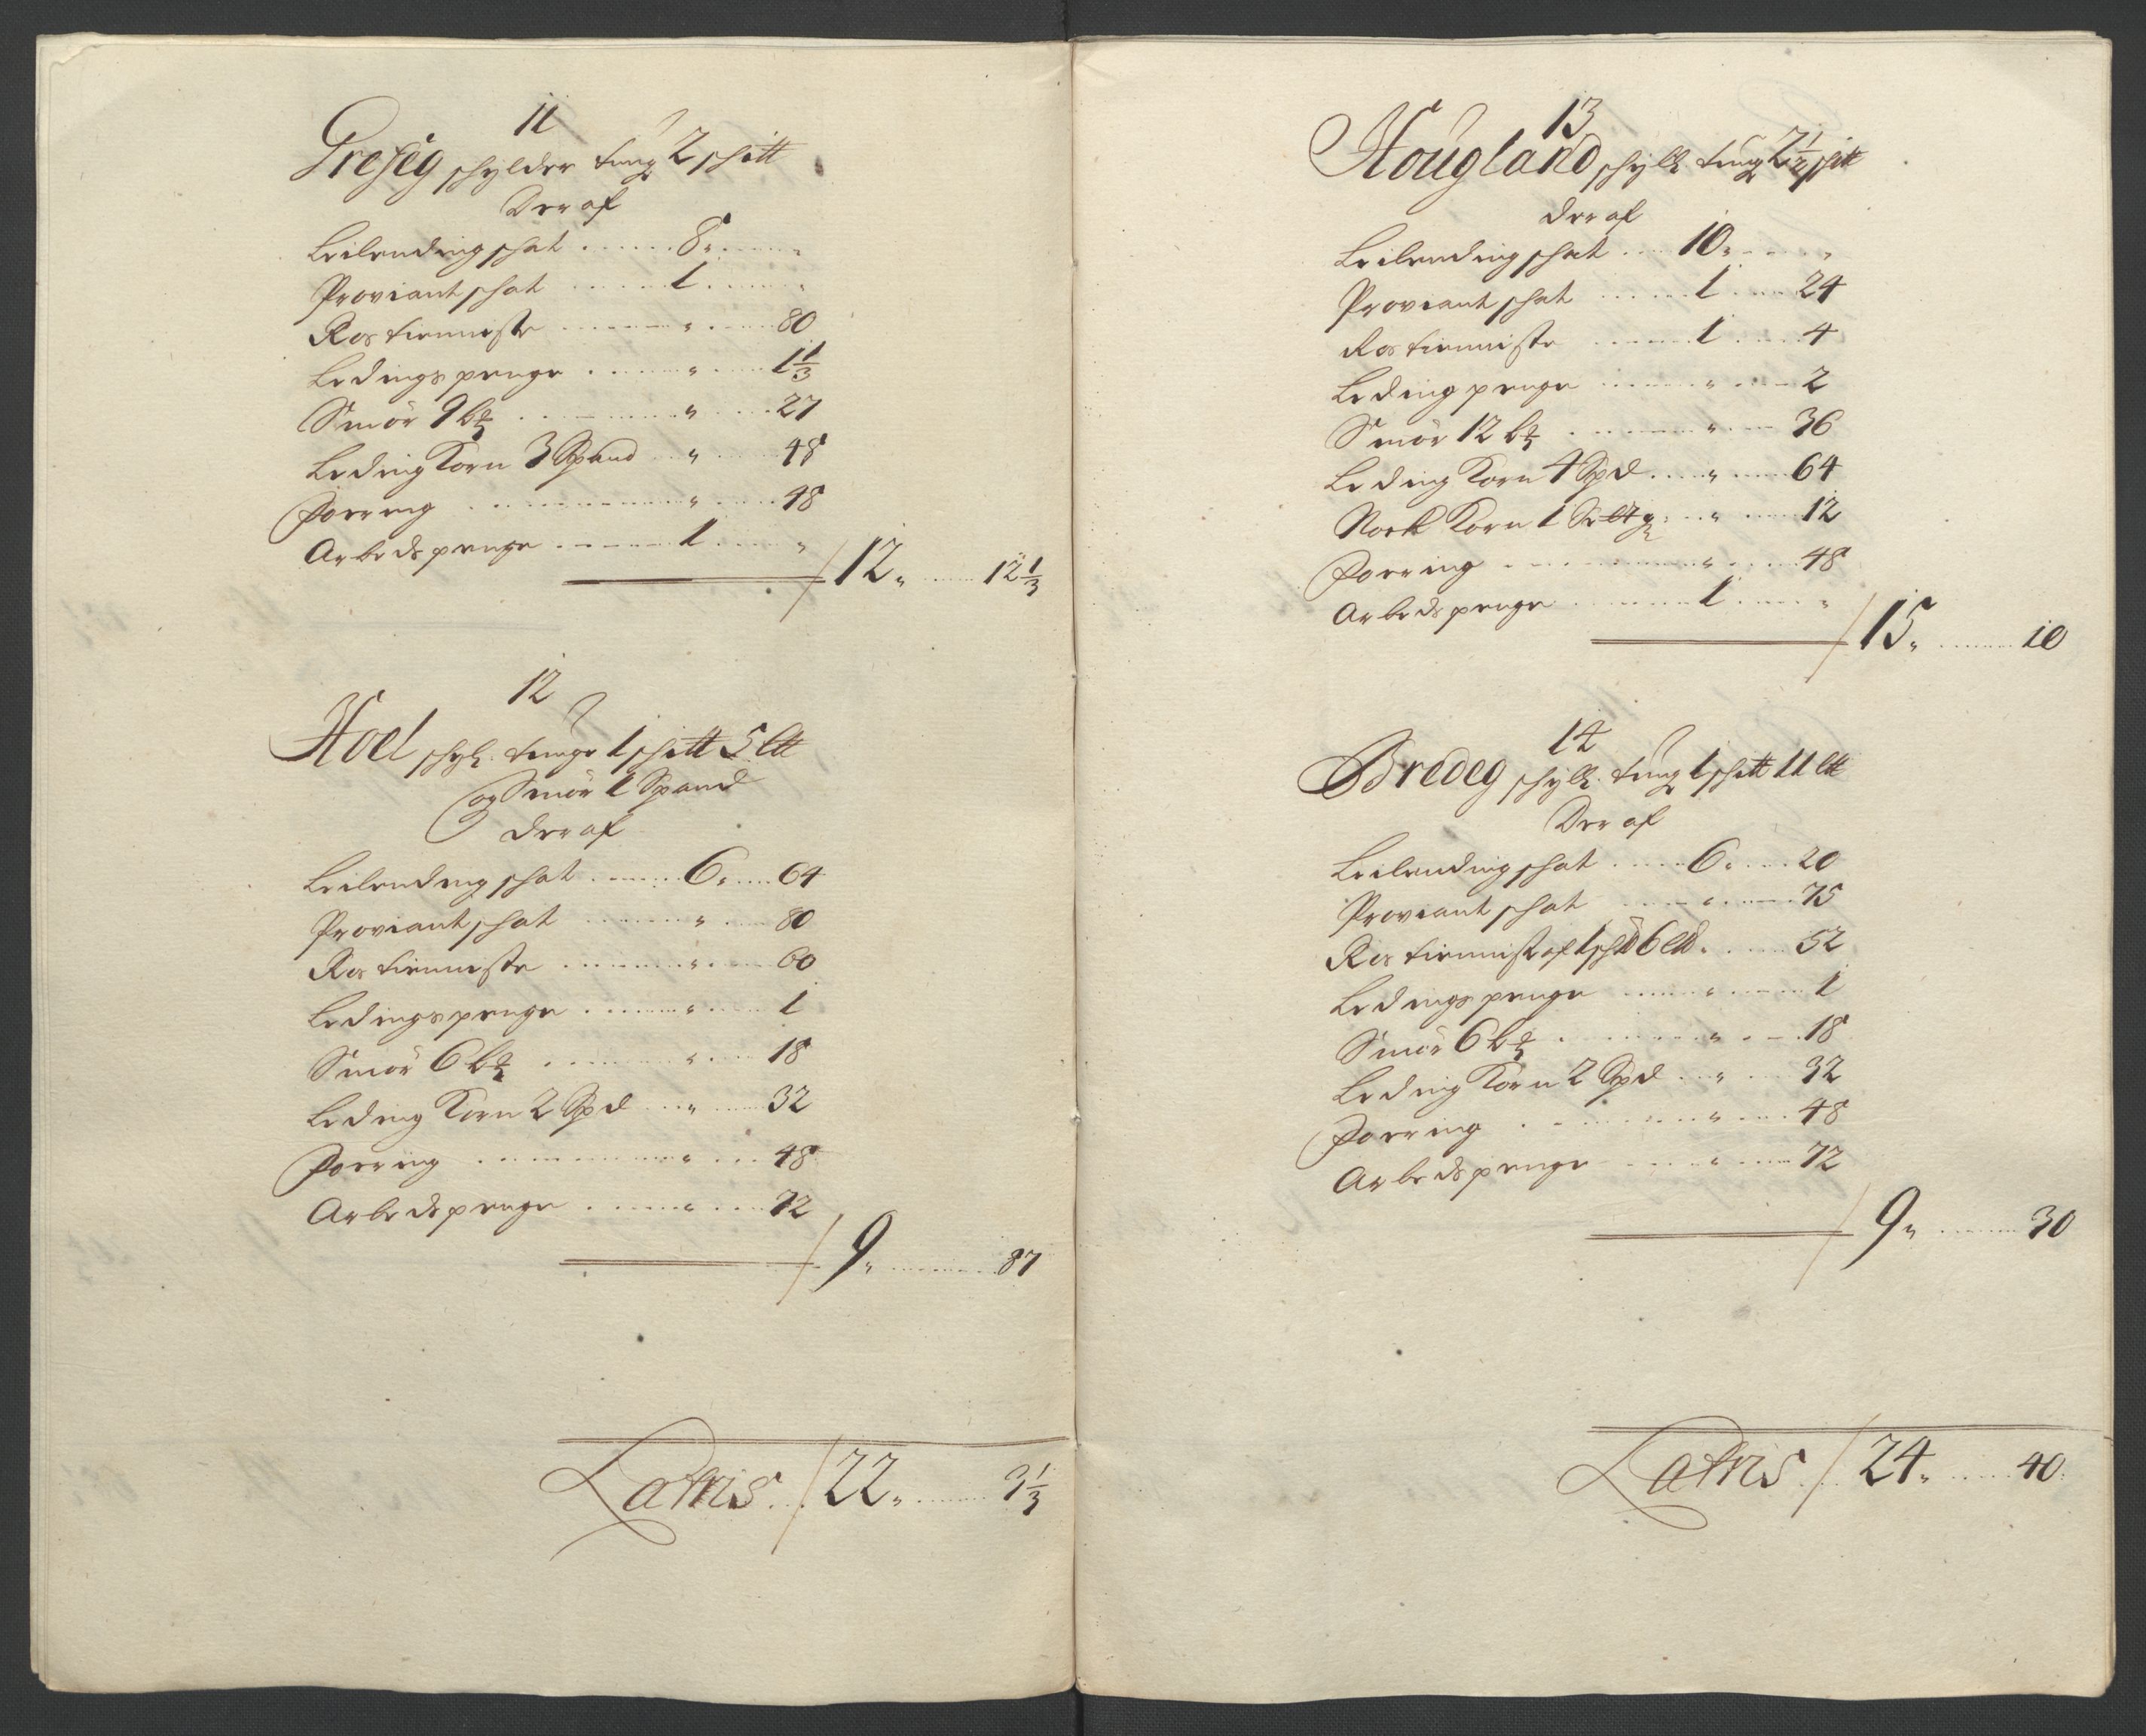 11
Greseg schylder tung 2 schitt
Der af
Leilending schat ...... 8 „ ..... „
Proviant schat ...... 1 ...... „
Ros tienniste ...... „ ..... 80
Ledings penge ...... „ ..... 1 1/3
Smör 9 b℔ ...... „ ..... 27
Leding Korn 3 Spand .. „ ..... 48
Foering ...... „ ..... 48
Arbeds penge ...... 1 ..... „
/ 12 „ ..... 12 1/3
12
Hoel schyl. tunge 1 schitt 5 ltt
og Smör 1 Spand
der af
Leilending schat ...... 6 „ .... 64
Proviant schat ...... „ ..... 80
Ros tienniste ...... „ ..... 60
Ledings penge ...... „ ..... 1
Smör 6 b℔ ...... „ ..... 18
Leding Korn 2 Spd ... „ ..... 32
Foering ...... „ ... 48
Arbeds penge ...... „ .... 72
/ 9 „ ........ 87
Latris ... / 22 „ ....... 3 1/3
13
Hougland schyll. tung 2 1/2 schitt
der af
Leilending schat .... 10 „ ..... „
Proviant schat ...... 1 .... 24
Ros tienniste ...... 1 .... 4
Leding penge ...... „ .... 2
Smör 12 b℔ ...... „ .... 36
Leding Korn 4 Spd .... „ ..... 64
Norsk Korn 1 ... „ ..... 12
Foering ...... „ ..... 48
Arbeds penge ...... 1 ..... „
/ 15 „ ....... 10
14
Bredeg schyll. tung 1 schitt 11 ltt
Der af
Leilending schat ..... 6 „ .... 20
Proviant schat ...... „ ..... 75
Ros tiennist af 1 schd 6 ltd. ..... 52
Ledings penge ...... „ ..... 1
Smör 6 b℔ ...... „ .... 18
Leding Korn 2 Spd .. „ .... 32
Foering ...... „ .... 48
Arbeds penge ..... „ .... 72
/ 9 „ ....... 30
Latris ... / 24 „ ..... 40